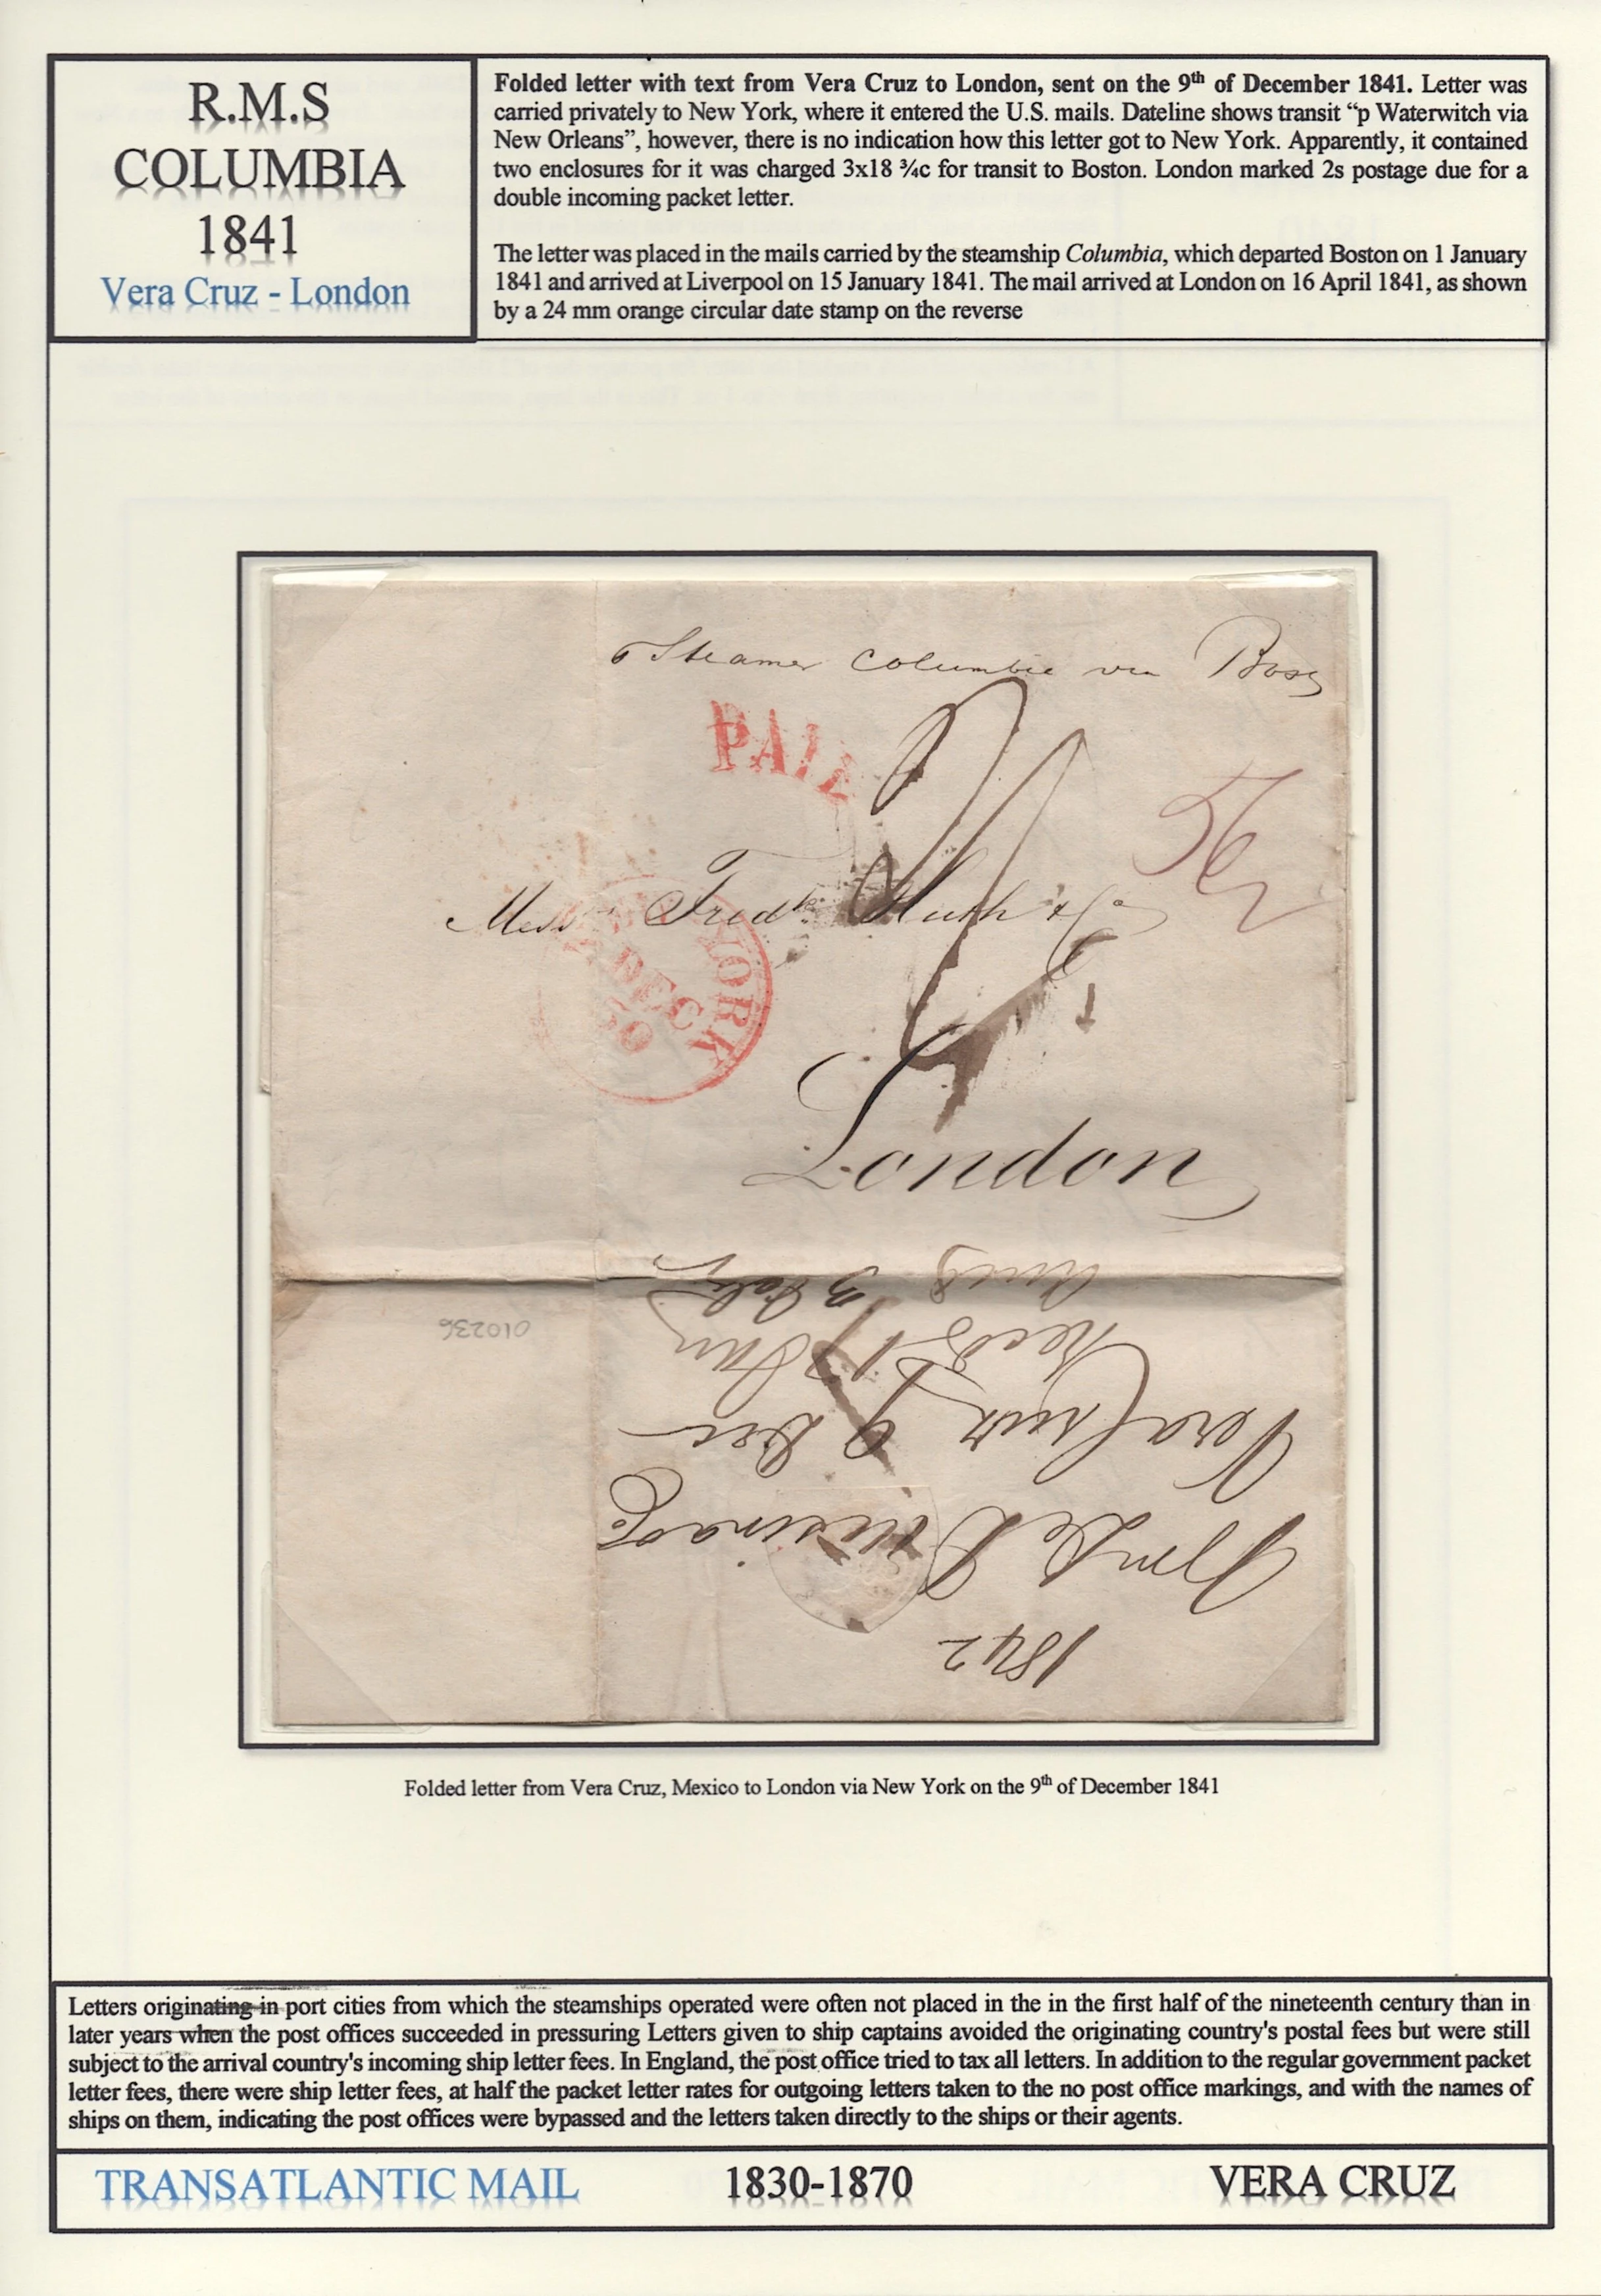 R.M.S
COLUMBIA
1841
Vera Cruz - London
Folded letter with text from Vera Cruz to London, sent on the 9th of December 1841. Letter was
carried privately to New York, where it entered the U.S. mails. Dateline shows transit “p Waterwitch via
New Orleans”, however, there is no indication how this letter got to New York. Apparently, it contained
two enclosures for it was charged 3x18 ¾c for transit to Boston. London marked 2s postage due for a
double incoming packet letter.
The letter was placed in the mails carried by the steamship Columbia, which departed Boston on 1 January
1841 and arrived at Liverpool on 15 January 1841. The mail arrived at London on 16 April 1841, as shown
by a 24 mm orange circular date stamp on the reverse
Steamer Columbia via Bos
PAID
56
Messrs Fredk Huth & Co
YORK
DEC
30
London
1842
Vera Cruz 9 Dec
Recd 17 Jan
Ansd 3 Feb
010236
Folded letter from Vera Cruz, Mexico to London via New York on the 9th of December 1841
Letters originating in port cities from which the steamships operated were often not placed in the in the first half of the nineteenth century than in
later years when the post offices succeeded in pressuring Letters given to ship captains avoided the originating country's postal fees but were still
subject to the arrival country's incoming ship letter fees. In England, the post office tried to tax all letters. In addition to the regular government packet
letter fees, there were ship letter fees, at half the packet letter rates for outgoing letters taken to the no post office markings, and with the names of
ships on them, indicating the post offices were bypassed and the letters taken directly to the ships or their agents.
TRANSATLANTIC MAIL 1830-1870 VERA CRUZ